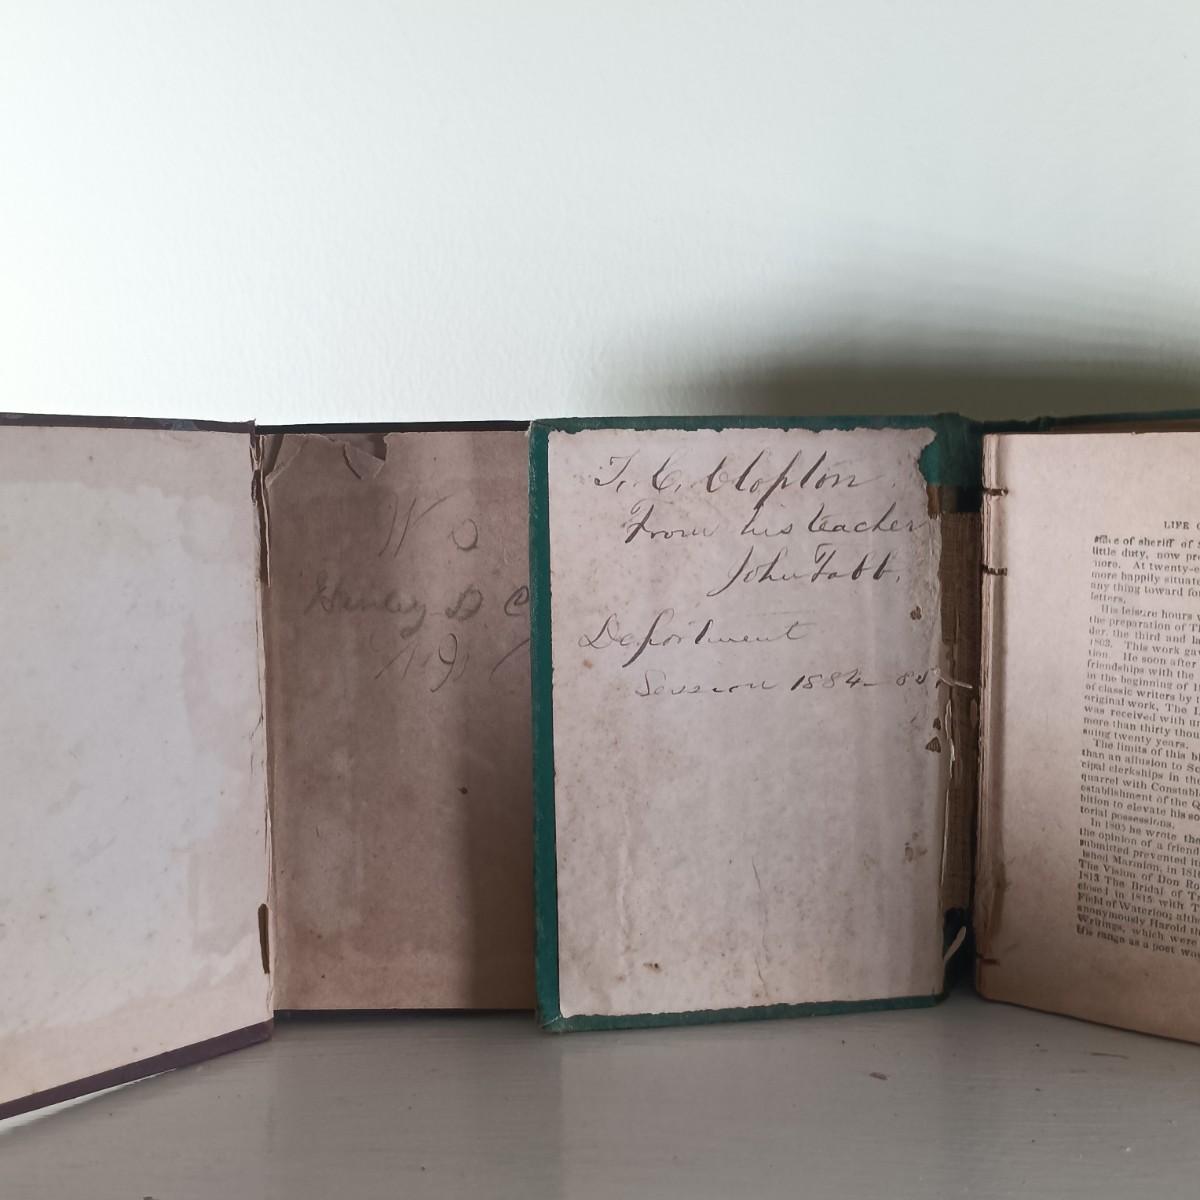 W
D. C
191
T. C. Clopton
From his teacher
John Tabb.
Deportment
Session 1884-85.
LIFE
of sheriff of
little duty, now
more. At twenty-
more happily
any thing toward
letters.
His leisure hours
the preparation of
der, the third and
1802. This work
tion. He soon after
friendships with the
in the beginning of
of classic writers by
original work, The
was received with
more than thirty
suing twenty years.
The limits of this
than an allusion to
cipal clerkships in the
quarrel with Constable
establishment of the Q
bition to elevate his
torial possessions.
In 1805 he wrote the
the opinion of a friend
submitted prevented
lished Marmion, in
The Vision of Don
1813 The Bridal of
closed in 1815 with
Field of Waterloo;
anonymously Harold
Writings, which were
His range as a poet was